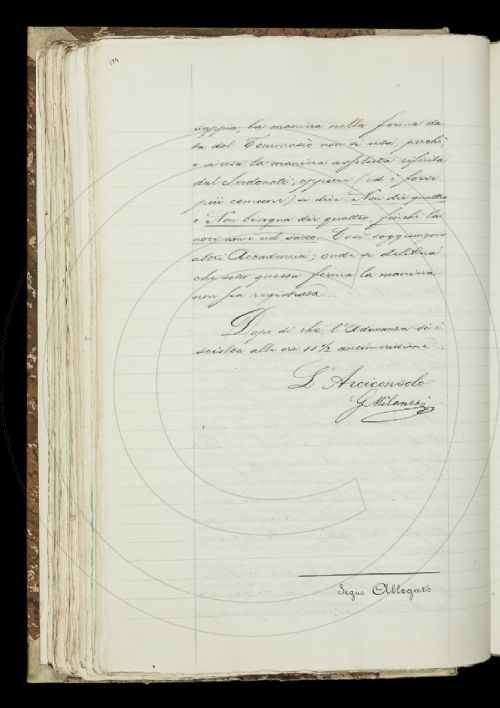 174
sappia, la maniera nella forma da-
ta dal Tommaseo non si usa, perchè
o si usa la maniera assoluta riferita
dal Serdonati, oppure (ed è forse
più comune) si dice: Non dir quattro
o Non bisogna dir quattro, finchè la
noce non è nel sacco. Così soggiungono
altri Accademici; onde si delibera
che sotto questa forma la maniera
non sia registrata.
Dopo di che, l'Adunanza si è
sciolta alle ore 11 1/2 antimeridiane.
L'Arciconsolo
G. Milanesi
Segue Allegato